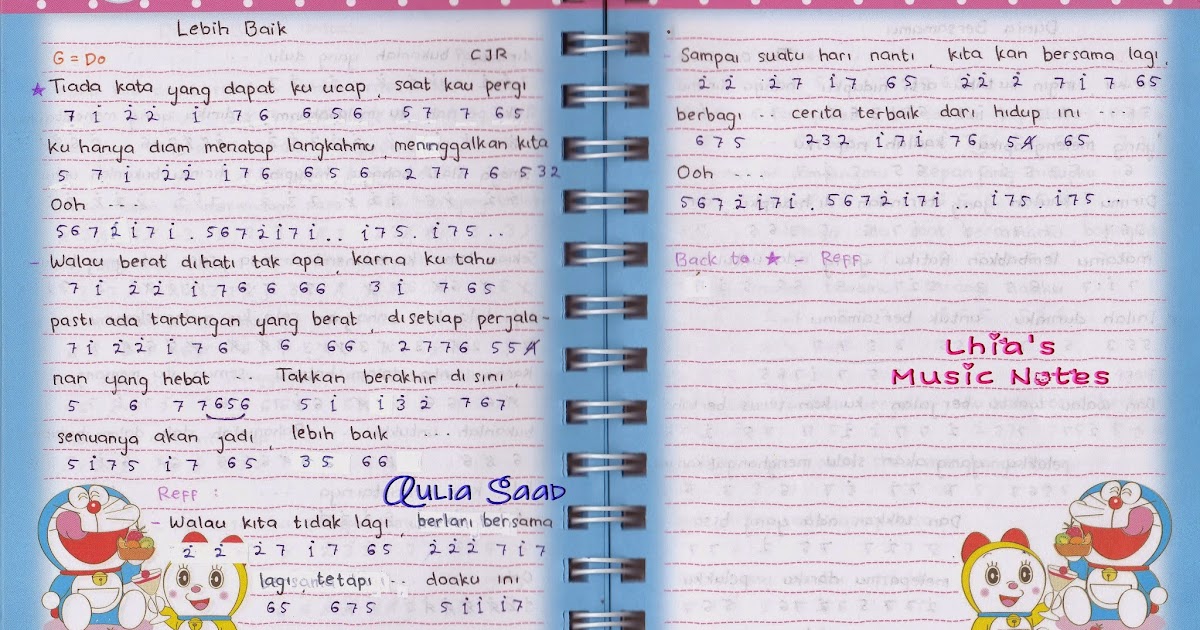 Lebih Baik
G = Do
CJR
★ Tiada kata yang dapat ku ucap, saat kau pergi
7 i̇ 2̇ 2̇ i̇ 7 6 6 5 6 5 7 7 6 5
ku hanya diam menatap langkahmu, meninggalkan kita
5 7 i̇ 2̇ 2̇ i̇ 7 6 6 5 6 2 7 7 6 5 3 2
Ooh ....
5 6 7 2̇ i̇ 7 i̇ . 5 6 7 2̇ i̇ 7 i̇ . . i̇ 7 5 . i̇ 7 5 . .
- Walau berat dihati tak apa, karna ku tahu
7 i̇ 2̇ 2̇ i̇ 7 6 6 6 6 3 i̇ 7 6 5
pasti ada tantangan yang berat, disetiap perjala-
7 i̇ 2̇ 2̇ i̇ 7 6 6 6 6 2 7 7 6 5 5 4
nan yang hebat .... Takkan berakhir di sini,
5 6 7 7 6 5 6 5 i̇ i̇ 3̇ 2̇ 7 6 7
semuanya akan jadi, lebih baik ....
5 i̇ 7 5 i̇ 7 6 5 3 5 6 6
Reff :
Aulia Saad
- Walau kita tidak lagi, berlari bersama
2̇ 2̇ 2̇ 7 i̇ 7 6 5 2̇ 2̇ 2̇ 7 i̇ 7
lagi, tetapi .. doaku ini
6 5 6 7 5 5 i̇ i̇ i̇ 7
- Sampai suatu hari nanti, kita kan bersama lagi,
2̇ 2̇ 2̇ 7 i̇ 7 6 5 2̇ 2̇ 2̇ 7 i̇ 7 6 5
berbagi .. cerita terbaik dari hidup ini ....
6 7 5 2 3 2 i̇ 7 i̇ 7 6 5 4 6 5
Ooh ....
5 6 7 2̇ i̇ 7 i̇ . 5 6 7 2̇ i̇ 7 i̇ . . i̇ 7 5 . i̇ 7 5 . .
Back to ★ - Reff
Lhia's
Music Notes